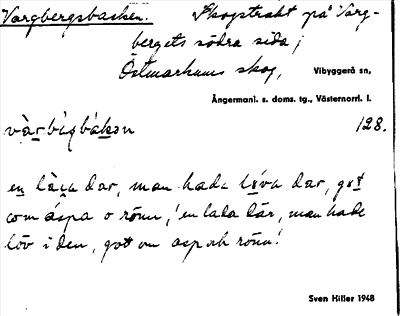 Vargbergsbacken. Skogstrakt på Varg-
bergets södra sida;
Östmarkums skog, Vibyggerå sn,
Ångermanl. s. doms. tg., Västernorrl. l.
128.
en lada dar, man hade
som äspa o rönn, en lada där, man hade
löv i den, gott om asp och rönn!
Sven Hiller 1948